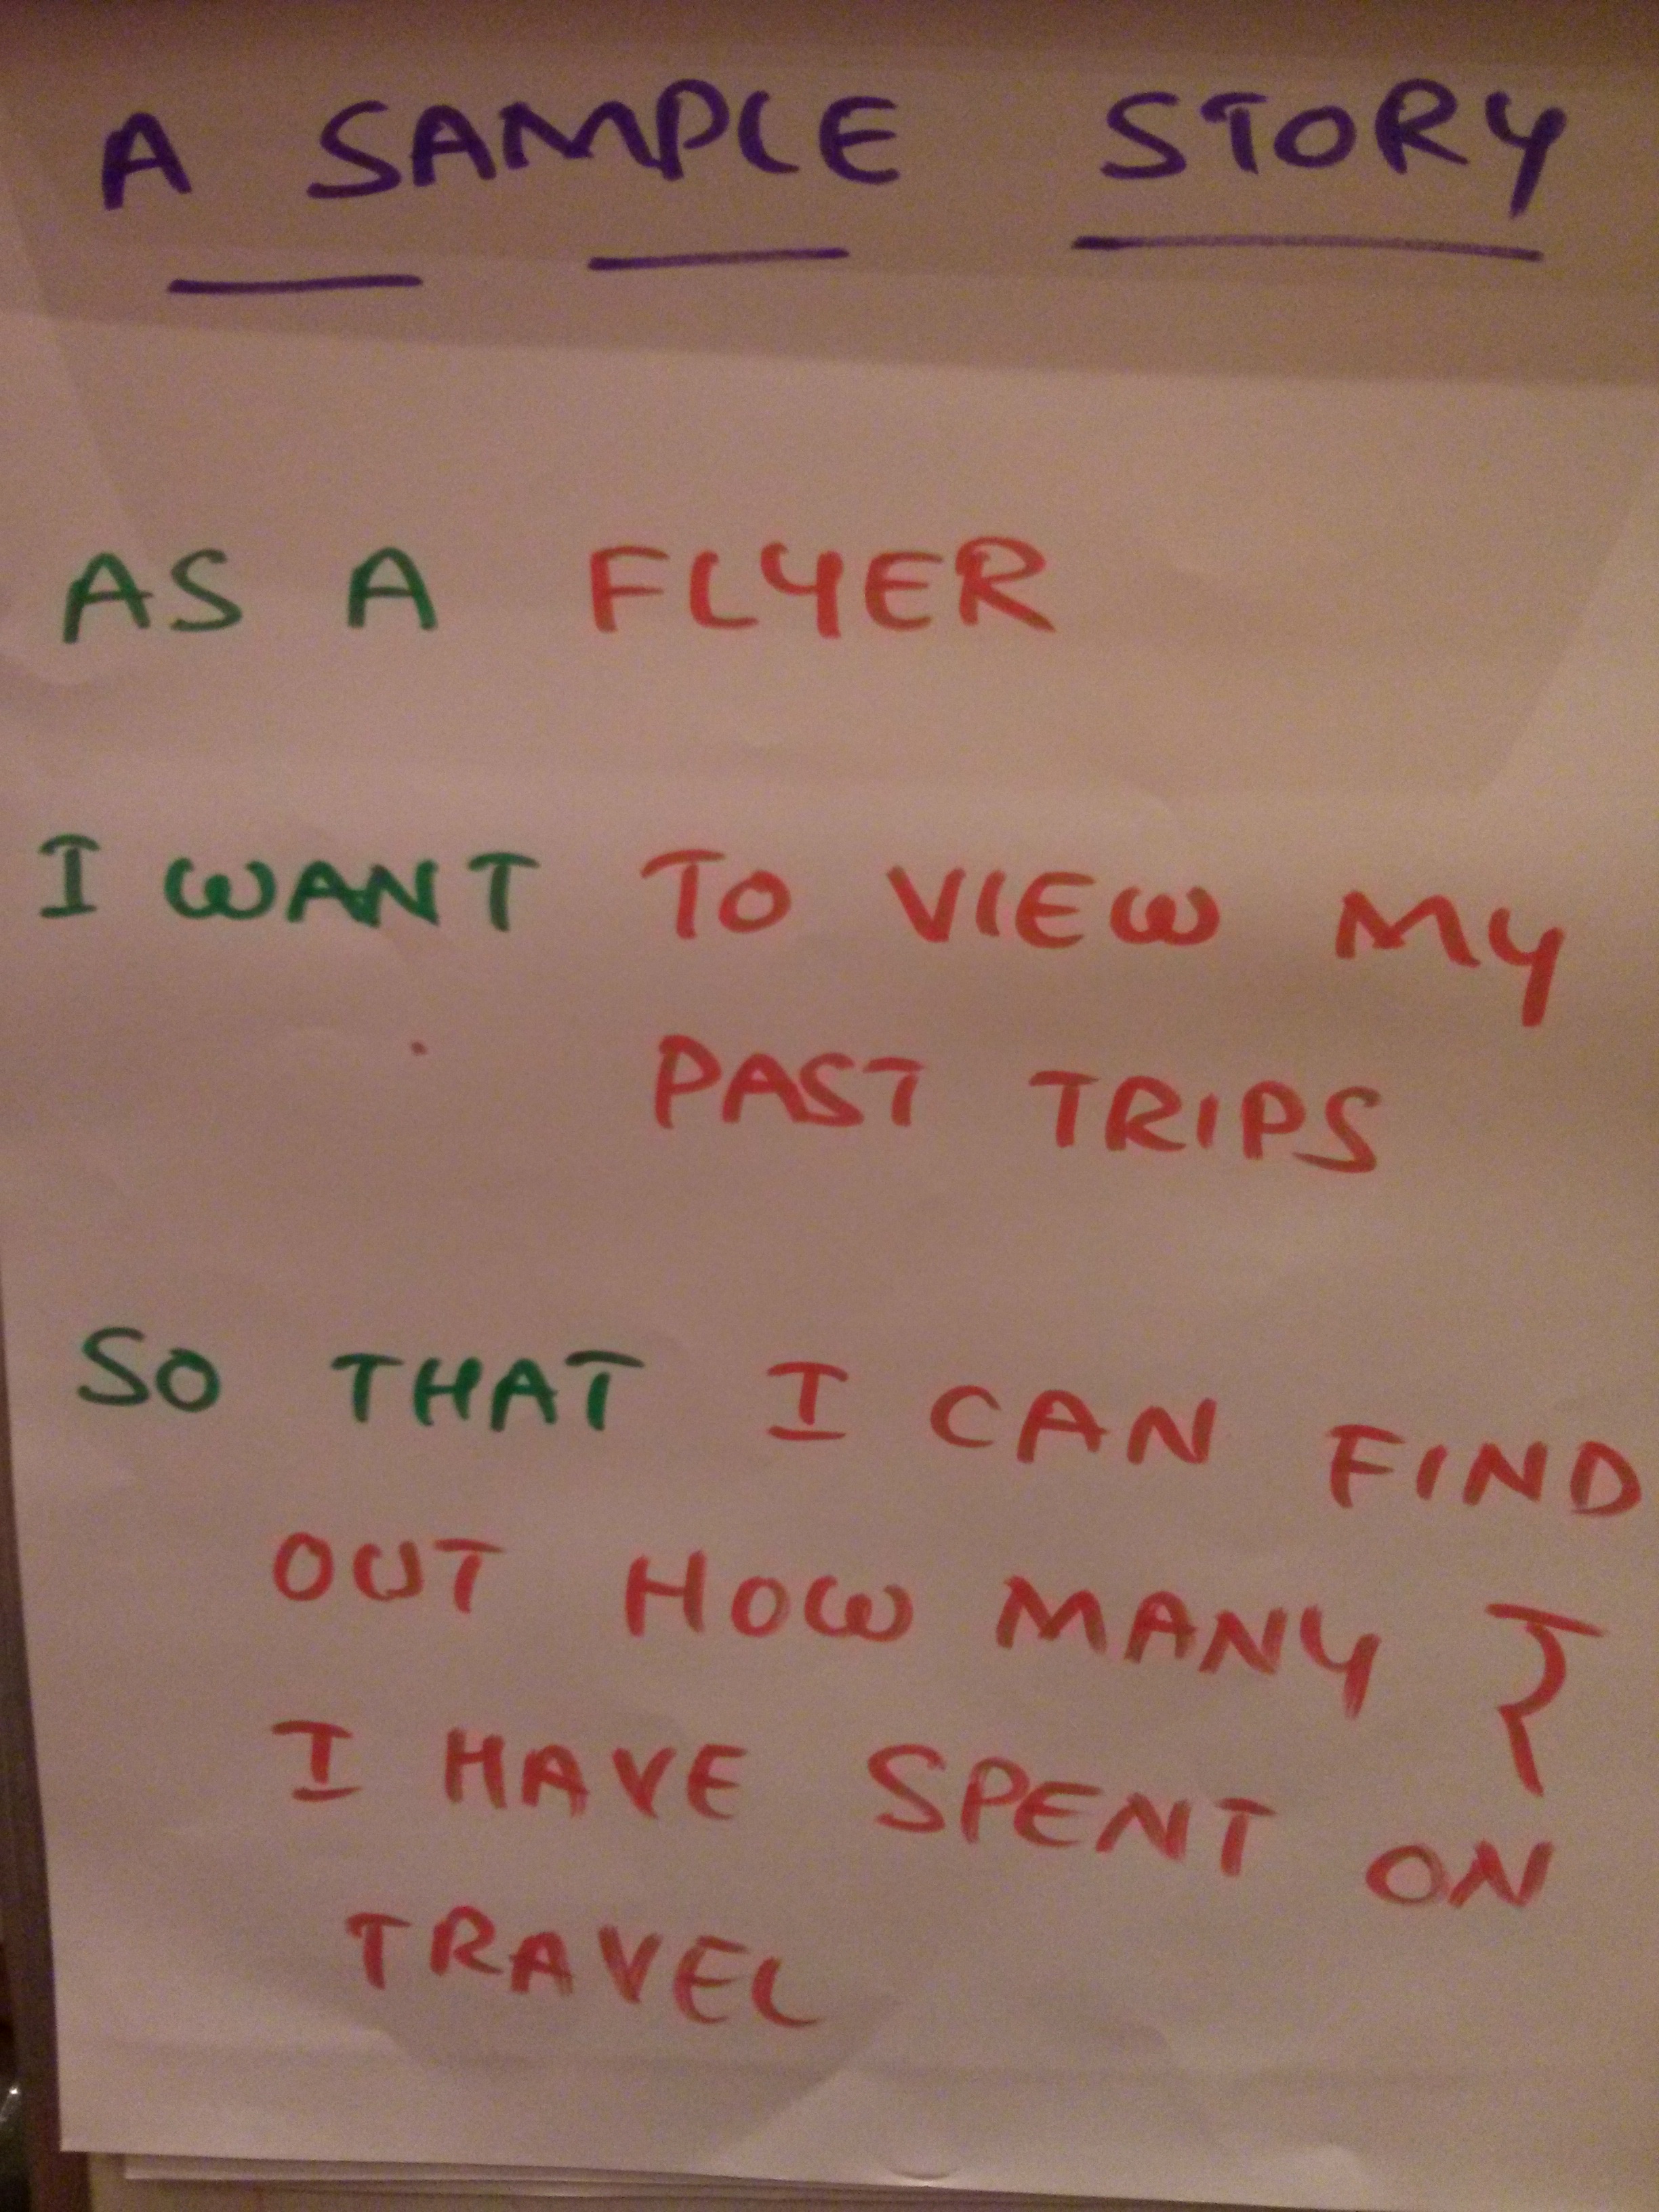 A SAMPLE STORY
AS A FLYER
I WANT TO VIEW MY
PAST TRIPS
SO THAT I CAN FIND
OUT HOW MANY ₹
I HAVE SPENT ON
TRAVEL